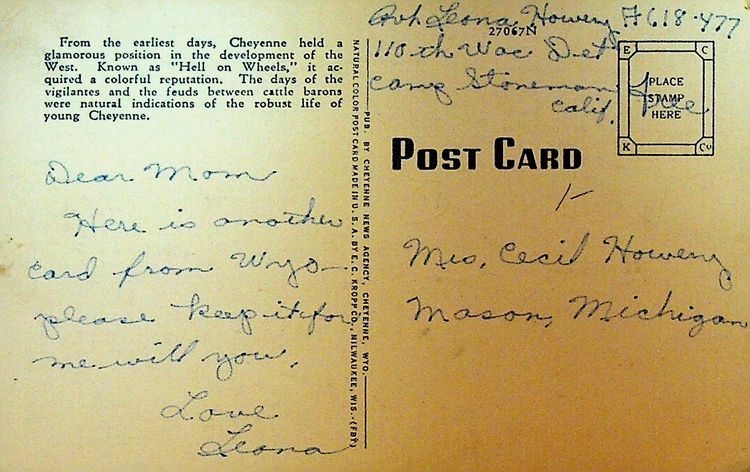 From the earliest days, Cheyenne held a
glamorous position in the development of the
West. Known as "Hell on Wheels," it ac-
quired a colorful reputation. The days of the
vigilantes and the feuds between cattle barons
were natural indications of the robust life of
young Cheyenne.
Dear Mom
Here is another
card from Wyo-
please keep it for
me will you.
Love
Leona
NATURAL COLOR POST CARD MADE IN U. S. A. BY E. C. KROPP CO., MILWAUKEE, WIS.-(FBY)
PUB. BY CHEYENNE NEWS AGENCY, CHEYENNE, WYO.
Pvt. Leona Howery A618-477
27067N
110th Wac Det
Camp Stoneman
Calif.
Free
E C
PLACE
STAMP
HERE
K Co
POST CARD
Mrs. Cecil Howery
Mason, Michigan